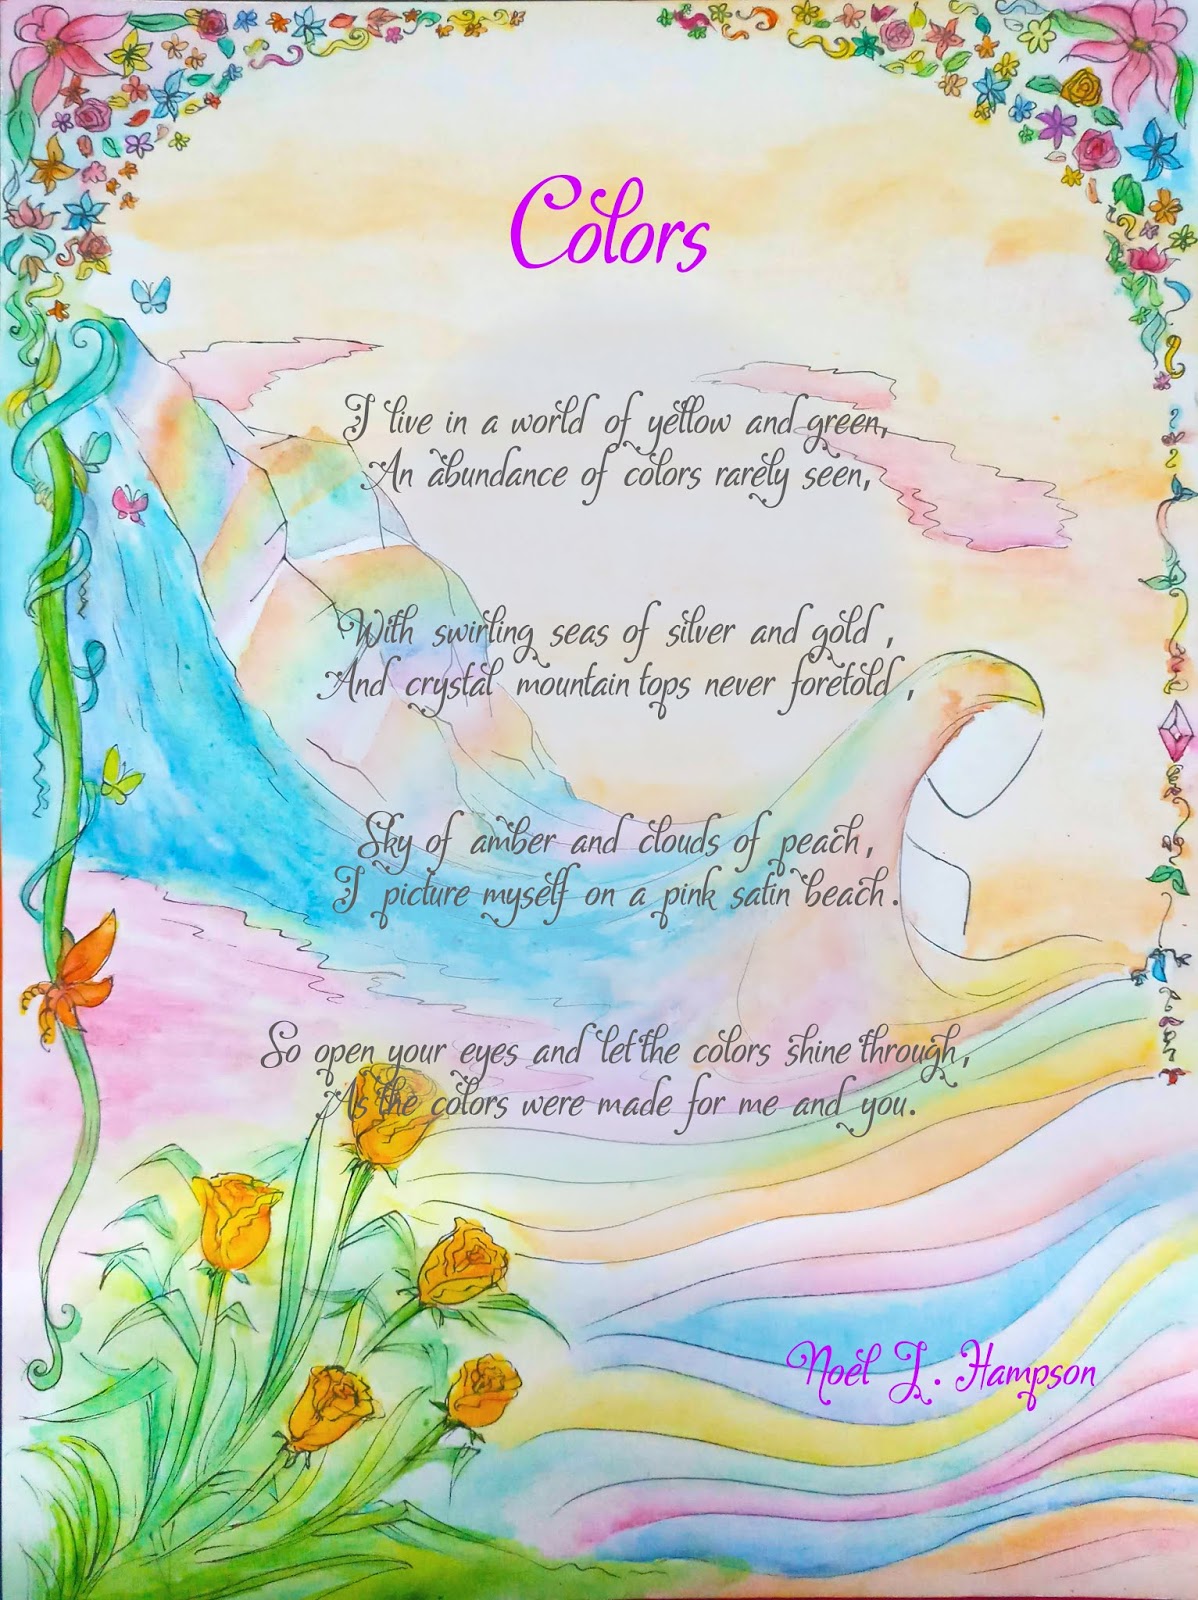 Colors
I live in a world of yellow and green,
An abundance of colors rarely seen,
With swirling seas of silver and gold ,
And crystal mountain tops never foretold ,
Sky of amber and clouds of peach,
I picture myself on a pink satin beach.
So open your eyes and let the colors shine through,
As the colors were made for me and you.
Noel J. Hampson